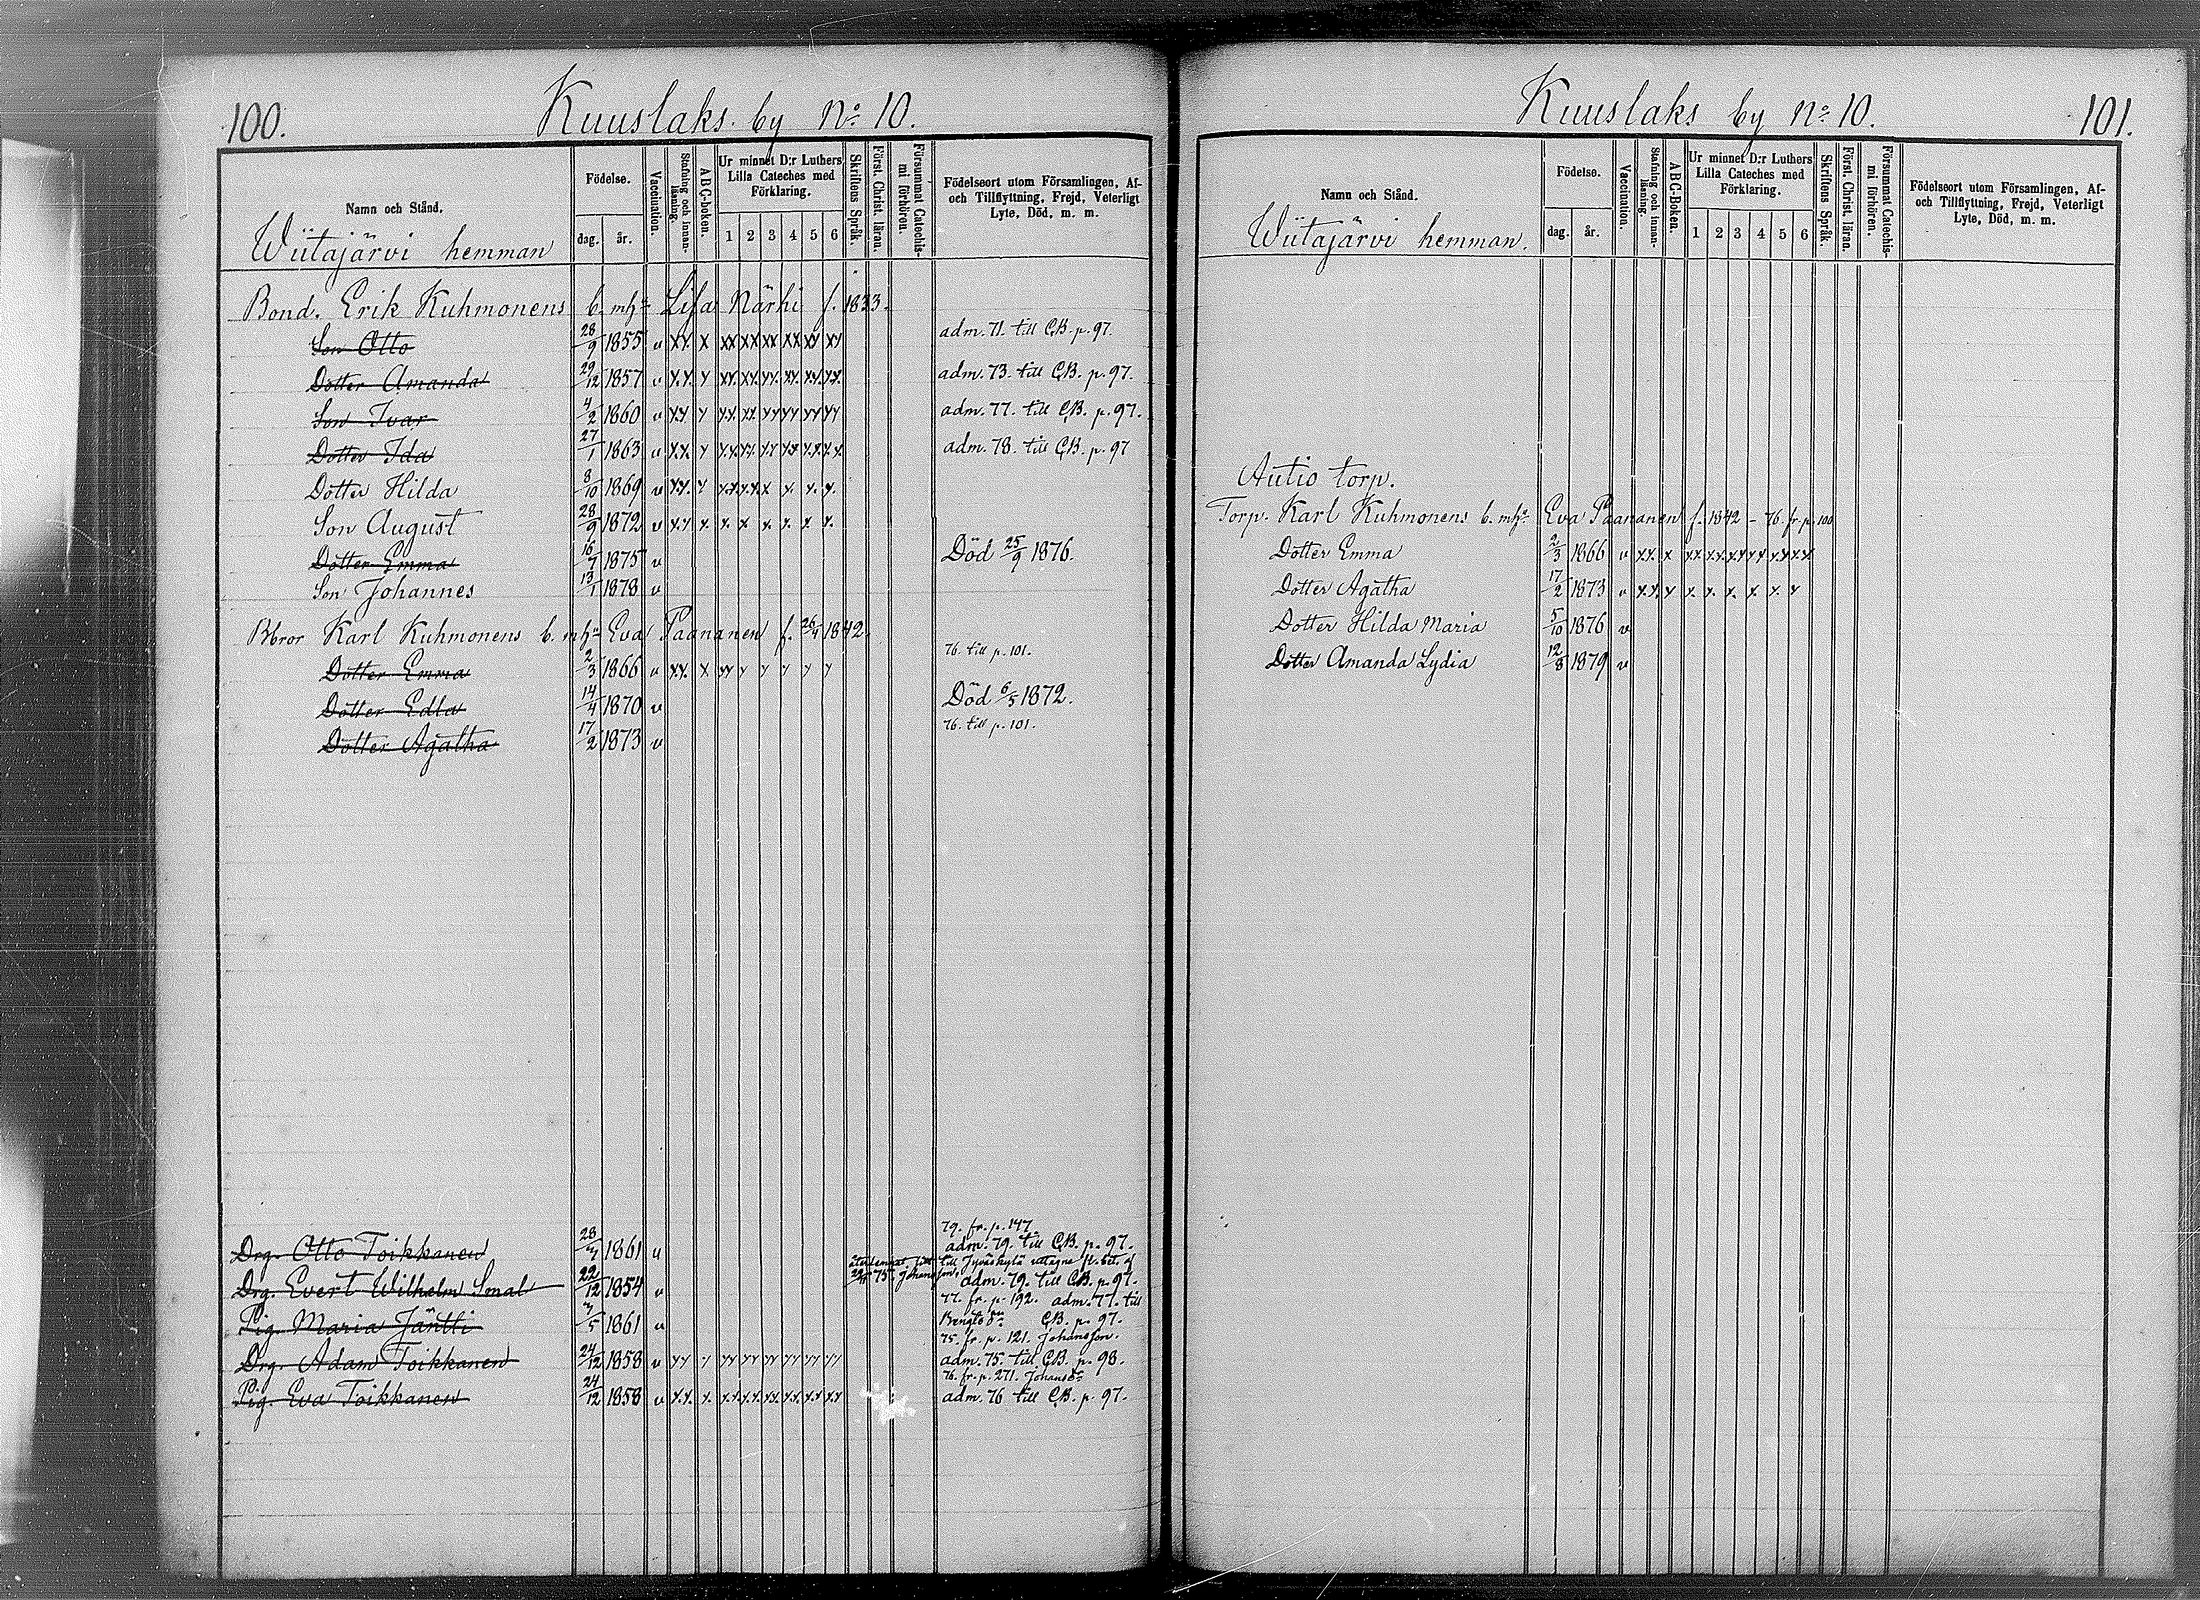 100. Kuuslaks by No 10.
Namn och Stånd.
Födelse.
dag. år.
Vaccination.
Stafning och innanläsning.
ABC-boken.
Ur minnet D:r Luthers Lilla Cateches med Förklaring.
1 2 3 4 5 6
Skriftens Språk.
Först. Christ. läran.
Försummat Catechismi förhören.
Födelseort utom Församlingen, Af- och Tillflyttning, Frejd, Veterligt Lyte, Död, m. m.
Wiitajärvi hemman
Bond. Erik Kuhmonens b. mha Lisa Närhi f. 1833.
Son Otto 28/9 1855 v xx x xx xx xx xx xx xx adm. 71. till C.B. p. 97.
Dotter Amanda 29/12 1857 v x.x. x xx. xx. xx. xx. xx. xx. adm. 73. till C.B. p. 97.
Son Ivar 4/2 1860 v xx x xx xx. xx xx xx xx adm. 77. till C.B. p. 97.
Dotter Ida 27/1 1863 v xx x x.x xx. x.x xx x.x x.x adm. 78. till C.B. p. 97
Dotter Hilda 8/10 1869 v xx. x x.x x.x x x. x. x.
Son August 28/9 1872 v x.x x. x. x x. x. x x.
Dotter Emma 16/7 1875 v Död 25/9 1876.
Son Johannes 13/1 1878 v
Bbror Karl Kuhmonens b. mha Eva Paananen f. 26/4 1842.
Dotter Emma 2/3 1866 v xx. x xx x x x x x 76. till p. 101.
Dotter Edla 14/4 1870 v Död 6/5 1872.
Dotter Agatha 17/2 1873 v 76. till p. 101.
79. fr. p. 147
Drg. Otto Toikkanen 28/7 1861 v adm. 79. till C.B. p. 97.
till Jyväskylä
Drg. Evert Wilhelm Smal 22/12 1854 v adm. 79. till C.B. p. 97.
77. fr. p. 192. adm. 77. till
Pig. Maria Jäntti 7/5 1861 v C.B. p. 97.
75. fr. p. 121. Johansson.
Drg. Adam Toikkanen 24/12 1858 v xx x xx xx xx xx xx xx adm. 75. till C.B. p. 98.
76. fr. p. 271.
Pig. Eva Toikkanen 24/12 1858 v x.x. x. x.x x.x. xx. x.x x.x xx adm. 76 till C.B. p. 97.
Kuuslaks by No 10. 101.
Namn och Stånd.
Födelse.
dag. år.
Vaccination.
Stafning och innanläsning.
ABC-Boken.
Ur minnet D:r Luthers Lilla Cateches med Förklaring.
1 2 3 4 5 6
Skriftens Språk.
Först. Christ. läran.
Försummat Catechismi förhören.
Födelseort utom Församlingen, Af- och Tillflyttning, Frejd, Veterligt Lyte, Död, m. m.
Wiitajärvi hemman.
Autio torp.
Torp. Karl Kuhmonens b. mha Eva Paananen f. 1842 - 76. fr. p. 100
Dotter Emma 2/3 1866 v x.x. x xx x.x x.x x.x x.x xx
Dotter Agatha 17/2 1873 v x.x. x x. x. x. x x. x
Dotter Hilda Maria 5/10 1876 v
Dotter Amanda Lydia 12/8 1879 v